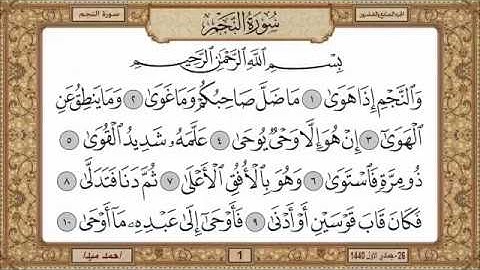 الجزء السابع والعشرون
سورة النجم
سُورَةُ النَّجْمِ
بِسْمِ ٱللَّهِ ٱلرَّحْمَٰنِ ٱلرَّحِيمِ
وَٱلنَّجْمِ إِذَا هَوَىٰ ١ مَا ضَلَّ صَاحِبُكُمْ وَمَا غَوَىٰ ٢ وَمَا يَنطِقُ عَنِ
ٱلْهَوَىٰٓ ٣ إِنْ هُوَ إِلَّا وَحْىٌ يُوحَىٰ ٤ عَلَّمَهُۥ شَدِيدُ ٱلْقُوَىٰ ٥
ذُو مِرَّةٍ فَٱسْتَوَىٰ ٦ وَهُوَ بِٱلْأُفُقِ ٱلْأَعْلَىٰ ٧ ثُمَّ دَنَا فَتَدَلَّىٰ ٨
فَكَانَ قَابَ قَوْسَيْنِ أَوْ أَدْنَىٰ ٩ فَأَوْحَىٰٓ إِلَىٰ عَبْدِهِۦ مَآ أَوْحَىٰ ١٠
26- جمادى الأول 1440
1
أحمد